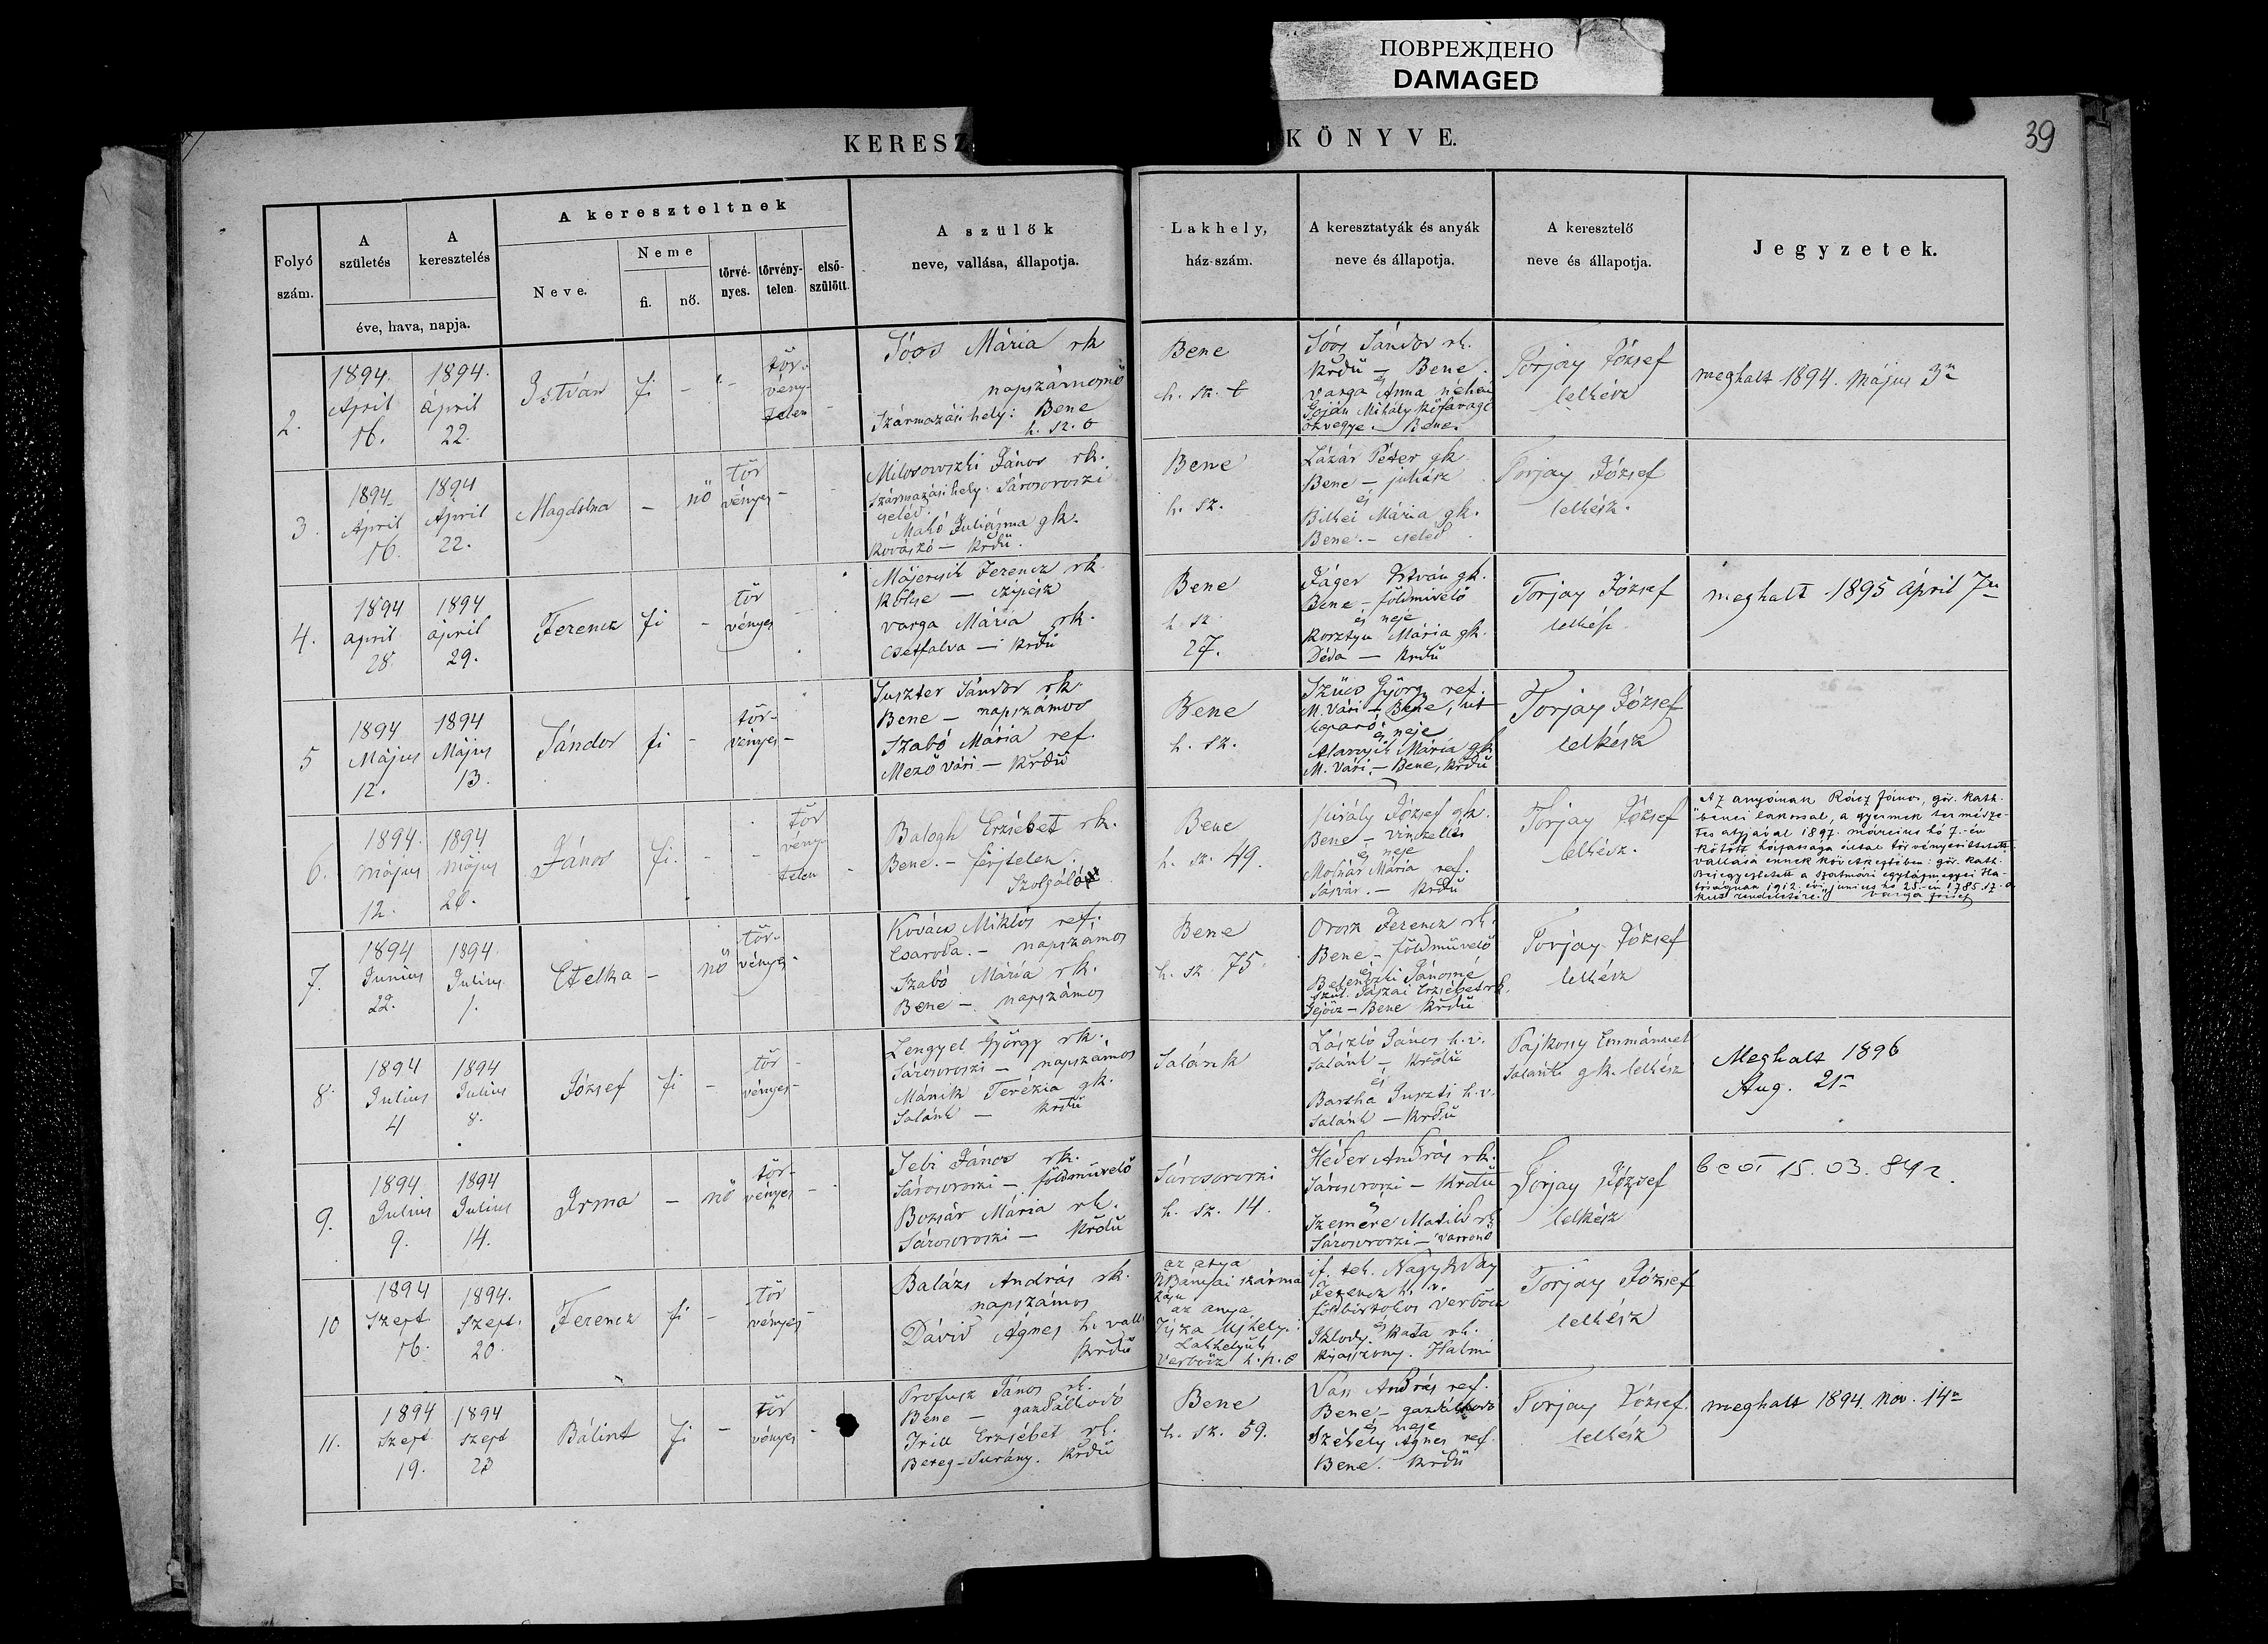 ПОВРЕЖДЕНО
DAMAGED
39
KERESZ KÖNYVE.
Folyó szám.
A születés
A keresztelés
éve, hava, napja.
A kereszteltnek
Neve.
Neme
fi.
nő.
törvé-nyes.
törvény-telen.
első-szülött.
A szülők
neve, vallása, állapotja.
Lakhely,
ház-szám.
A keresztatyák és anyák
neve és állapotja.
A keresztelő
neve és állapotja.
Jegyzetek.
2.
1894. April 16.
1894. április 22.
István
fi
-
-
törvény-telen
-
Sóos Mária rk
napszámosnő
Származási hely: Bene
h. sz. 0
Bene
h. sz.
Sóos Sándor rk.
krdü - Bene.
és
Varga Anna néhai
Mihály kőfaragó
özvegye. Bene.
Torjay József
lelkész
meghalt 1894. május 3n
3.
1894 April 16.
1894 April 22.
Magdolna
-
nő
törvényes
-
-
Milosovszki János rk.
Származási hely: Sárosoroszi
cseléd.
Makó Juliánna gk.
Kovászó - krdü.
Bene
h. sz.
Lázár Péter gk
Bene - juhász
és
Bilkei Mária gk.
Bene. - cseléd
Torjay József
lelkész.
4.
1894 april 28.
1894 april 29.
Ferencz
fi
-
törvényes
-
Májercsik Ferencz rk.
Kölcse - czipész
Varga Mária rk.
Csetfalva - krdü
Bene
h. sz.
27.
Jáger István gk.
Bene - földmivelő
és neje
Korsztyu Mária gk.
Déda - krdü
Torjay József
lelkész
meghalt 1895 április 7én
5
1894 Május 12.
1894 Május 13.
Sándor
fi
-
tör-vényes
-
Suszter Sándor rk.
Bene - napszámos
Szabó Mária ref.
Mező Vári - krdü
Bene
h. sz.
Szücs György ref.
M. Vári - Bene,
és neje
Mária gk
M. Vári. - Bene, krdü
Torjay József
lelkész
6.
1894. május 12.
1894 Május 20.
János
fi.
-
-
törvény-telen
-
Balogh Erzsébet rk.
Bene. - férjtelen.
Szolgáló
Bene
h. sz. 49.
Király József gk.
Bene - vinczellér
és neje
Molnár Mária ref.
Sásvár. - krdü
Torjay József
lelkész.
Az anyának Rácz János, gör. kath.
benei lakossal, a gyermek természe-
tes atyjával 1897. márczius hó 7.-én
kötött házassága által törvényesittetett
vallása ennek következtében: gör. kath.
Bejegyeztetett a szatmári egyházmegyei Ha-
tóságnak 1912. évi junius hó 25.-én 1785. sz. a.
kelt rendeletére. Varga József
7.
1894 Junius 22.
1894. Julius 1.
Etelka
-
nő
tör-vényes
-
Kovács Miklós ref.
Csaroda. - napszámos
Szabó Mária rk.
Bene - napszámos
Bene
h. sz. 75.
Orosz Ferencz rk.
Bene - földmüvelő
és
Jánosné
szül. Erzsébet rk.
Bene krdü
Torjay József
lelkész
8.
1894 Julius 4
1894 Julius 8.
József
fi
-
törvényes
-
Lengyel György rk.
Sárosoroszi - napszámos
Mánik Terézia gk.
Salánk - krdü
Salánk
László János h.v.
Salánk - krdü
és
Bartha Juszti h.v.
Salánk - krdü
Pajkossy Emmánuel
Salánk gk. lelkész
Meghalt 1896
Aug. 21n
9.
1894 Julius 9.
1894 Julius 14.
Irma
-
nő
törvényes
-
Sebi János rk.
Sárosoroszi - földmüvelő
Bozsár Mária rk.
Sárosoroszi - krdü
Sárosoroszi
h. sz. 14.
Héder András rk.
Sárosoroszi - krdü
és
Szemere Matild rk
Sárosoroszi - varrónő
Torjay József
lelkész
15.03.
10
1894 Szept. 16.
1894. Szept. 20.
Ferencz
fi
-
törvényes
-
Balázs András rk.
napszámos
Dávid Ágnes h. vall.
krdü
az atya
NBányai szárma
zásu
az anya
Tisza Ujhelyi.
Lakhelyük
Verbőcz
if. tek. Nagy
Ferencz h. v.
földbirtokos Verbőcz
és
Iklody Kata rk.
kisasszony. Halmi
Torjay József
lelkész
11.
1894 Szept. 19.
1894 Szept 23
Bálint
fi
-
törvényes
-
Profusz János rk.
Bene - gazdálkodó
Irill Erzsébet rk.
Bereg-Surány. krdü
Bene
h. sz. 59.
Vas András ref.
Bene - gazdálkodó
és neje
Székely Ágnes ref.
Bene. krdü
Torjay József.
lelkész
meghalt 1894. nov. 14n